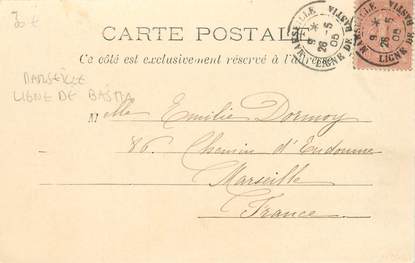 CARTE POSTALE
Ce côté est exclusivement réservé à l'adresse
MARSEILLE
LIGNE DE BASTIA
MARSEILLE
LIGNE DE BASTIA
9
26 -5
05
MARSEILLE
LIGNE DE BASTIA
9
26 -5
05
M lle Emilie Dormoy
86 Chemin d'Endoume
Marseille
France